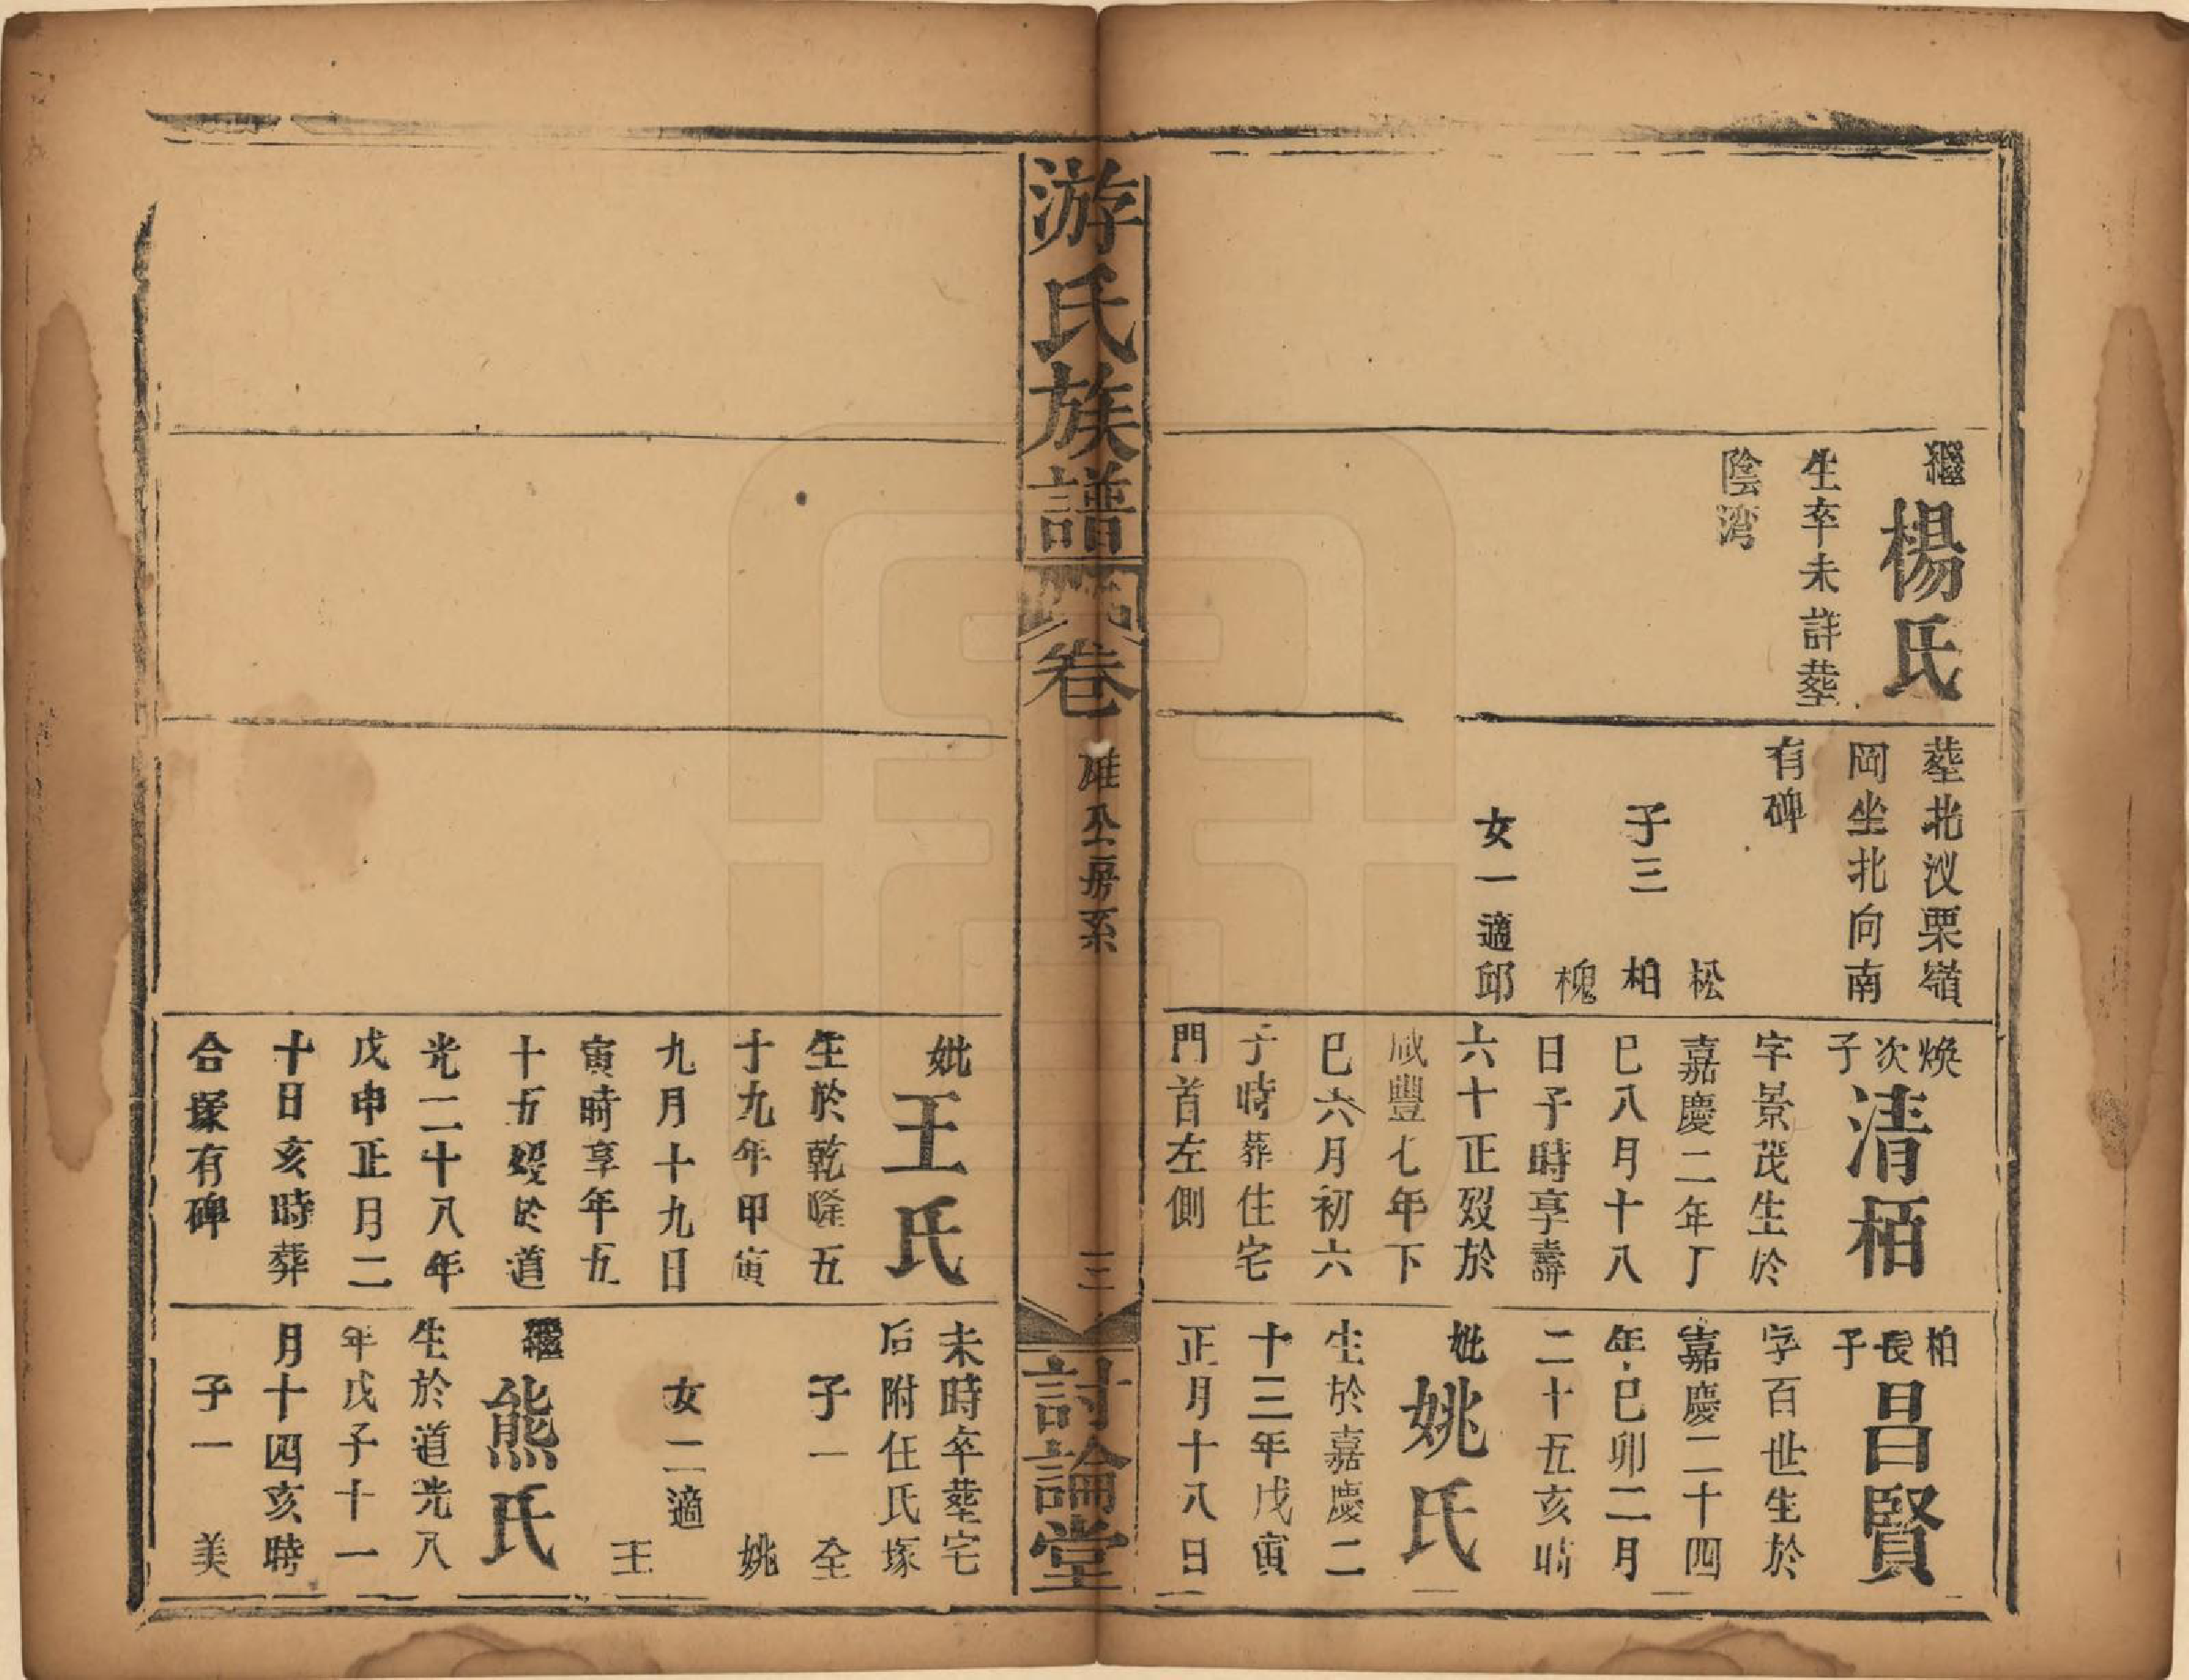 繼
楊氏
生卒未詳塟
陰湾
塟北汊栗嶺
岡坐北向南
有碑
子三
松
柏
槐
女一適邱
煥次子
清栢
字景茂生於
嘉慶二年丁
巳八月十八
日子時享壽
六十正歿於
咸豐七年下
巳六月初六
子時葬住宅
門首左側
柏長子
昌賢
字百世生於
嘉慶二十四
年己卯二月
二十五亥時
妣
姚氏
生於嘉慶二
十三年戊寅
正月十八日
游氏族譜
卷一
雄公房系
三
討論堂
妣
王氏
生於乾隆五
十九年甲寅
九月十九日
寅時享年五
十五歿於道
光二十八年
戊申正月二
十日亥時葬
合塚有碑
未時卒塟宅
后附任氏塚
子一
全
女二適
姚
王
繼
熊氏
生於道光八
年戊子十一
月十四亥時
子一
美